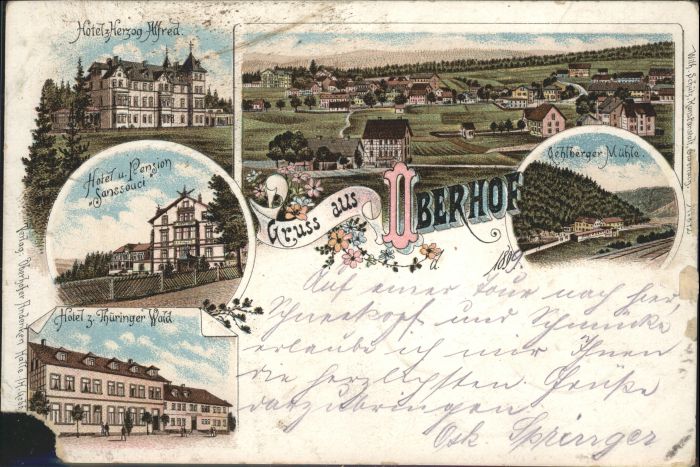 Hotel z. Herzog Alfred.
Hotel u. Pension
"Sanssouci"
Hotel z. Thüringer Wald
Gehlberger Mühle.
Gruss aus OBERHOF
d. 1889.
Auf einer Tour nach hier,
Schneekopf und Schmücke
erlaube ich mir Ihnen
die herzlichsten Grüße
darzubringen.
Osk Springer
Verlag: Oberhofer Andenken Halle